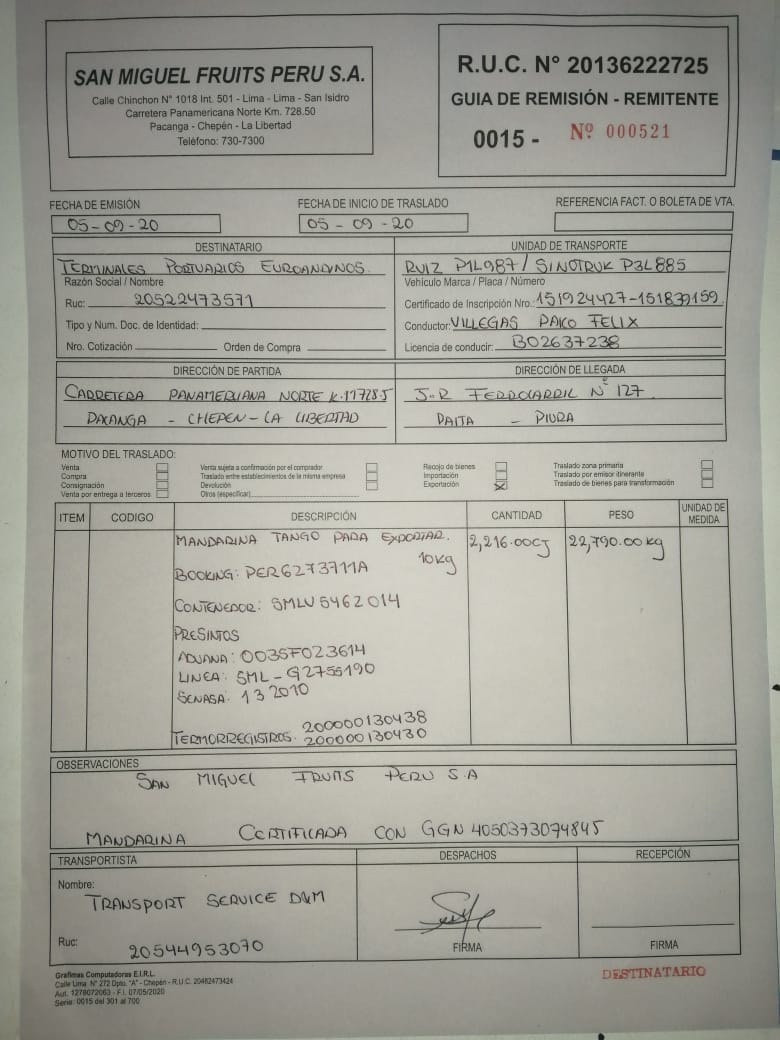 SAN MIGUEL FRUITS PERU S.A.
Calle Chinchon N° 1018 Int. 501 - Lima - Lima - San Isidro
Carretera Panamericana Norte Km. 728.50
Pacanga - Chepén - La Libertad
Teléfono: 730-7300
R.U.C. N° 20136222725
GUIA DE REMISIÓN - REMITENTE
0015 - Nº 000521
FECHA DE EMISIÓN
05-09-20
FECHA DE INICIO DE TRASLADO
05-09-20
REFERENCIA FACT. O BOLETA DE VTA.
DESTINATARIO
TERMINALES PORTUARIOS EUROANDINOS
Razón Social / Nombre
Ruc: 20522473571
Tipo y Num. Doc. de Identidad:
Nro. Cotización Orden de Compra
UNIDAD DE TRANSPORTE
RUIZ P1L987 / SINOTRUK P3L885
Vehículo Marca / Placa / Número
Certificado de Inscripción Nro.: 151924427-151839159
Conductor: VILLEGAS PAICO FELIX
Licencia de conducir: B02637238
DIRECCIÓN DE PARTIDA
CARRETERA PANAMERICANA NORTE K.M 728.5
PACANGA - CHEPEN - LA LIBERTAD
DIRECCIÓN DE LLEGADA
J.R FERROCARRIL Nº 127
PAITA - PIURA
MOTIVO DEL TRASLADO:
Venta
Compra
Consignación
Venta por entrega a terceros
Venta sujeta a confirmación por el comprador
Traslado entre establecimientos de la misma empresa
Devolución
Otros (especificar)
Recojo de bienes
Importación
Exportación X
Traslado zona primaria
Traslado por emisor itinerante
Traslado de bienes para transformación
ITEM CODIGO DESCRIPCIÓN CANTIDAD PESO UNIDAD DE MEDIDA
MANDARINA TANGO PARA EXPORTAR. 2,216.00CJ 22,790.00 kg
10kg
BOOKING: PER6273711A
CONTENEDOR: SMLU 5462014
PRESINTOS
ADUANA: 0035F023614
LINEA: SML-G2755190
SENASA: 132010
TERMORREGISTROS. 200000130438
200000130430
OBSERVACIONES
SAN MIGUEL FRUITS PERU S.A
MANDARINA CERTIFICADA CON GGN 4050373074845
TRANSPORTISTA
Nombre:
TRANSPORT SERVICE D&M
Ruc: 20544953070
DESPACHOS
FIRMA
RECEPCIÓN
FIRMA
Grafimas Computadoras E.I.R.L.
Calle Lima N° 272 Dpto. "A" - Chepén - R.U.C. 20482473424
Aut. 1278072063 - F.I. 07/05/2020
Serie: 0015 del 301 al 700
DESTINATARIO